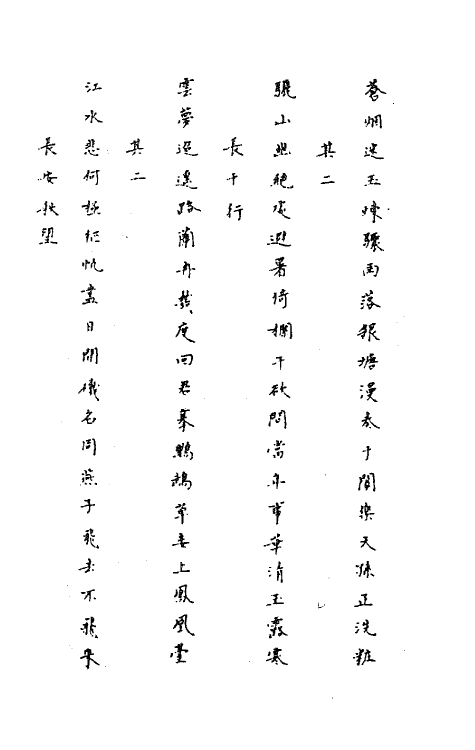 蒼烟迷玉棟驟雨落銀塘漫奏于闐樂天孫正洗粧
其二
驪山幽絕處避暑倚欄干欲問當年事華清玉露寒
長干行
雲夢迢遙路蘭舟幾度回君慕鸚鵡草妾上鳳凰臺
其二
江水悲何極征帆盡日開磯名同燕子飛去不飛來
長安秋望